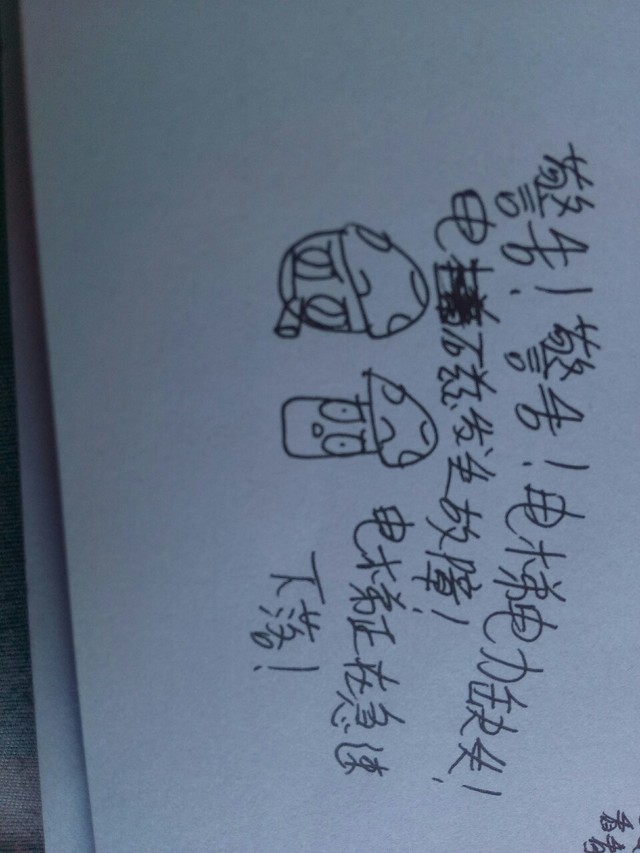 警告！警告！电梯电力缺失！
电磁发生故障！
电梯正在急速
下落！